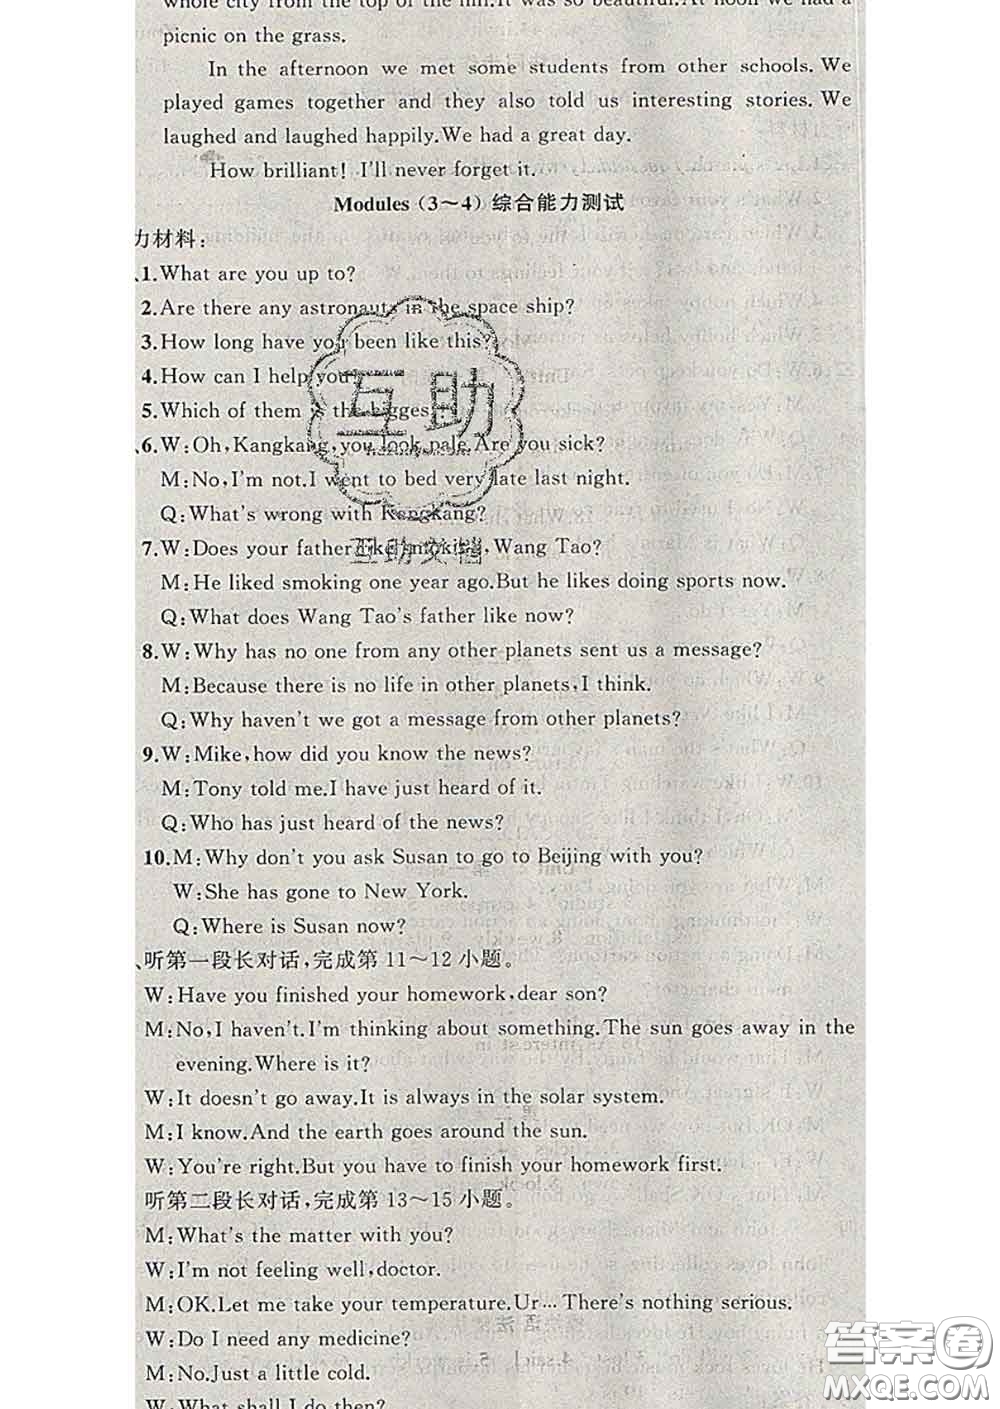 whole city from the top of the hill. It was so beautiful. At noon we had a
picnic on the grass.
In the afternoon we met some students from other schools. We
played games together and they also told us interesting stories. We
laughed and laughed happily. We had a great day.
How brilliant! I'll never forget it.
Modules (3～4) 综合能力测试
力材料:
1. What are you up to?
2. Are there any astronauts in the space ship?
3. How long have you been like this?
4. How can I help you?
5. Which of them is the biggest?
6. W: Oh, Kangkang, you look pale. Are you sick?
M: No, I'm not. I went to bed very late last night.
Q: What's wrong with Kangkang?
7. W: Does your father like smoking, Wang Tao?
M: He liked smoking one year ago. But he likes doing sports now.
Q: What does Wang Tao's father like now?
8. W: Why has no one from any other planets sent us a message?
M: Because there is no life in other planets, I think.
Q: Why haven't we got a message from other planets?
9. W: Mike, how did you know the news?
M: Tony told me. I have just heard of it.
Q: Who has just heard of the news?
10. M: Why don't you ask Susan to go to Beijing with you?
W: She has gone to New York.
Q: Where is Susan now?
听第一段长对话,完成第 11～12 小题。
W: Have you finished your homework, dear son?
M: No, I haven't. I'm thinking about something. The sun goes away in the
evening. Where is it?
W: It doesn't go away. It is always in the solar system.
M: I know. And the earth goes around the sun.
W: You're right. But you have to finish your homework first.
听第二段长对话,完成第 13～15 小题。
M: What's the matter with you?
W: I'm not feeling well, doctor.
M: OK. Let me take your temperature. Ur… There's nothing serious.
W: Do I need any medicine?
M: No. Just a little cold.
W: What shall I do then?
互助
互助文档
答案圈
MXQE.COM